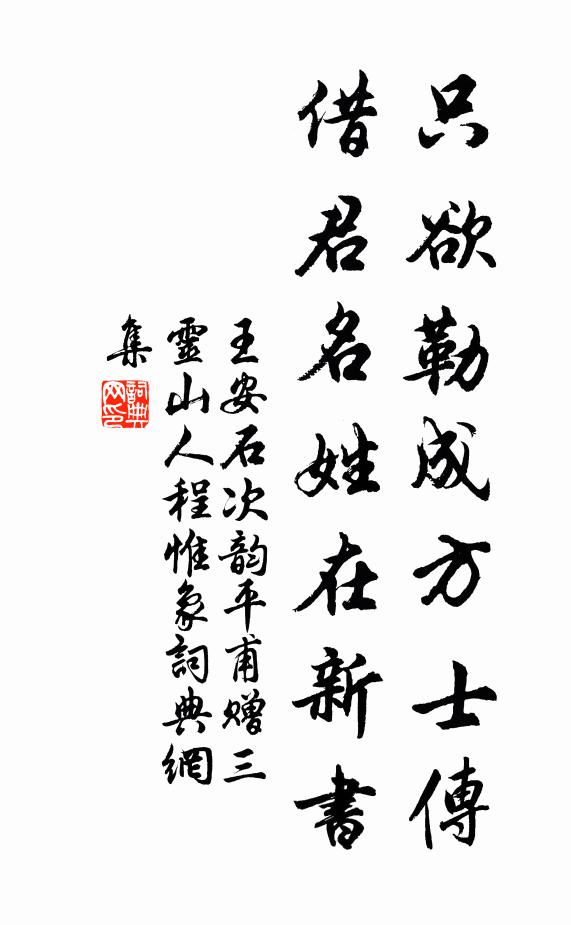 只欲勒成方士傳
借君名姓在新書
王安石次韵平甫贈三
靈山人程惟象詞典網
集
詞典網印